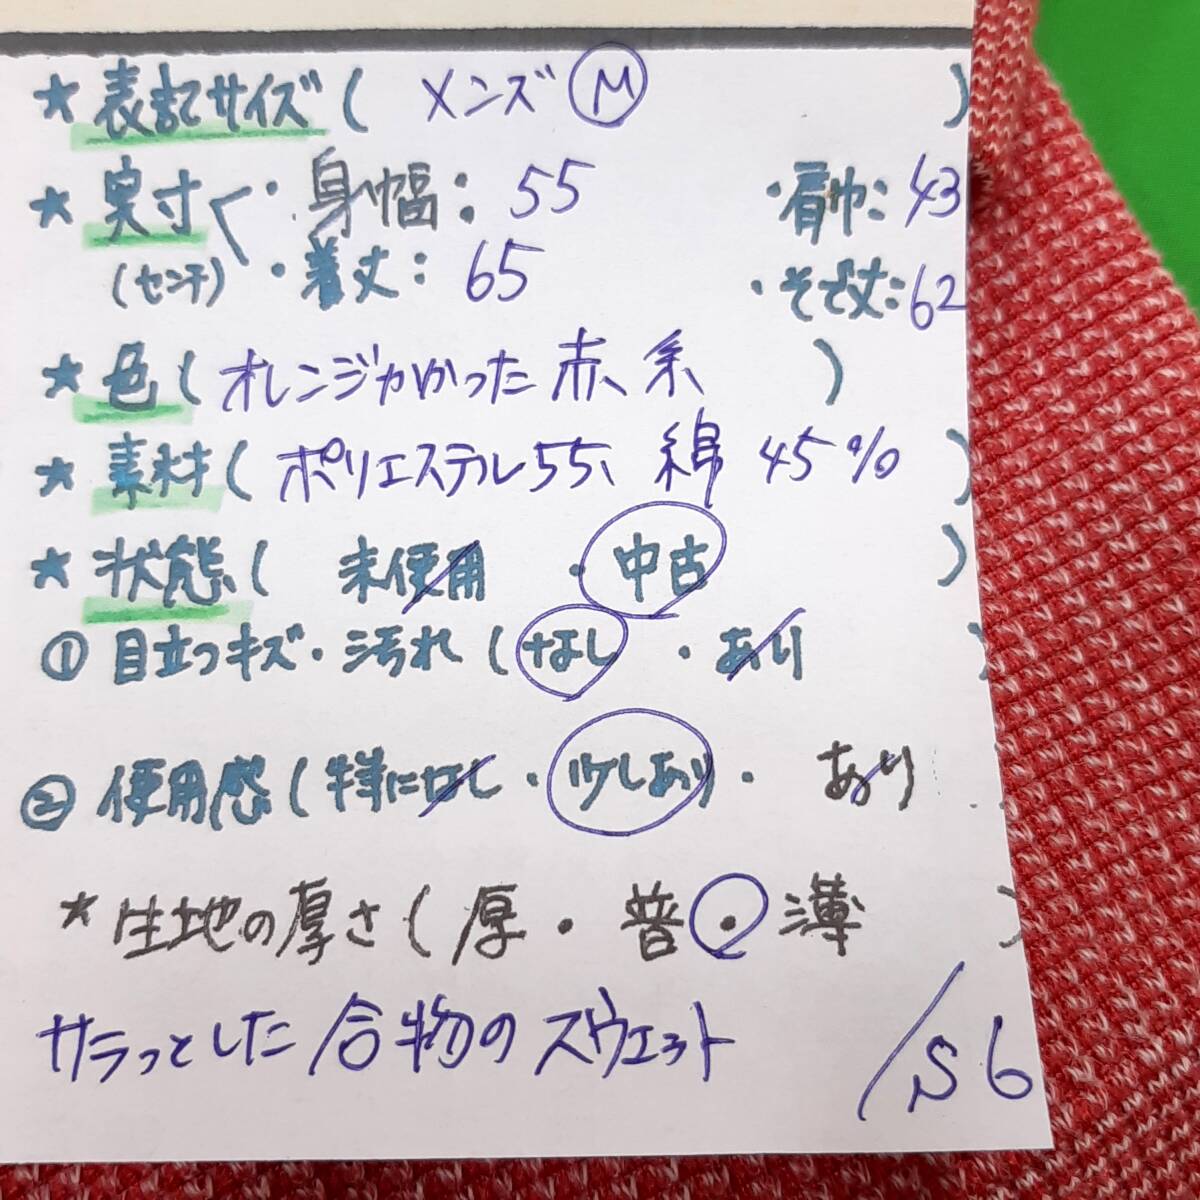 ★表記サイズ( メンズ Ⓜ )
★実寸 ・身幅: 55 ・肩巾: 43
(センチ) ・着丈: 65 ・そで丈: 62
★色(オレンジがかった赤系 )
★素材(ポリエステル55、綿 45% )
★状態( 未使用 ・ 中古 )
①目立つキズ・汚れ(なし ・ あり )
②使用感(特になし ・ 少しあり ・ あり
★生地の厚さ(厚 ・ 普 ・ 薄 )
サラっとした合物のスウェット /S6